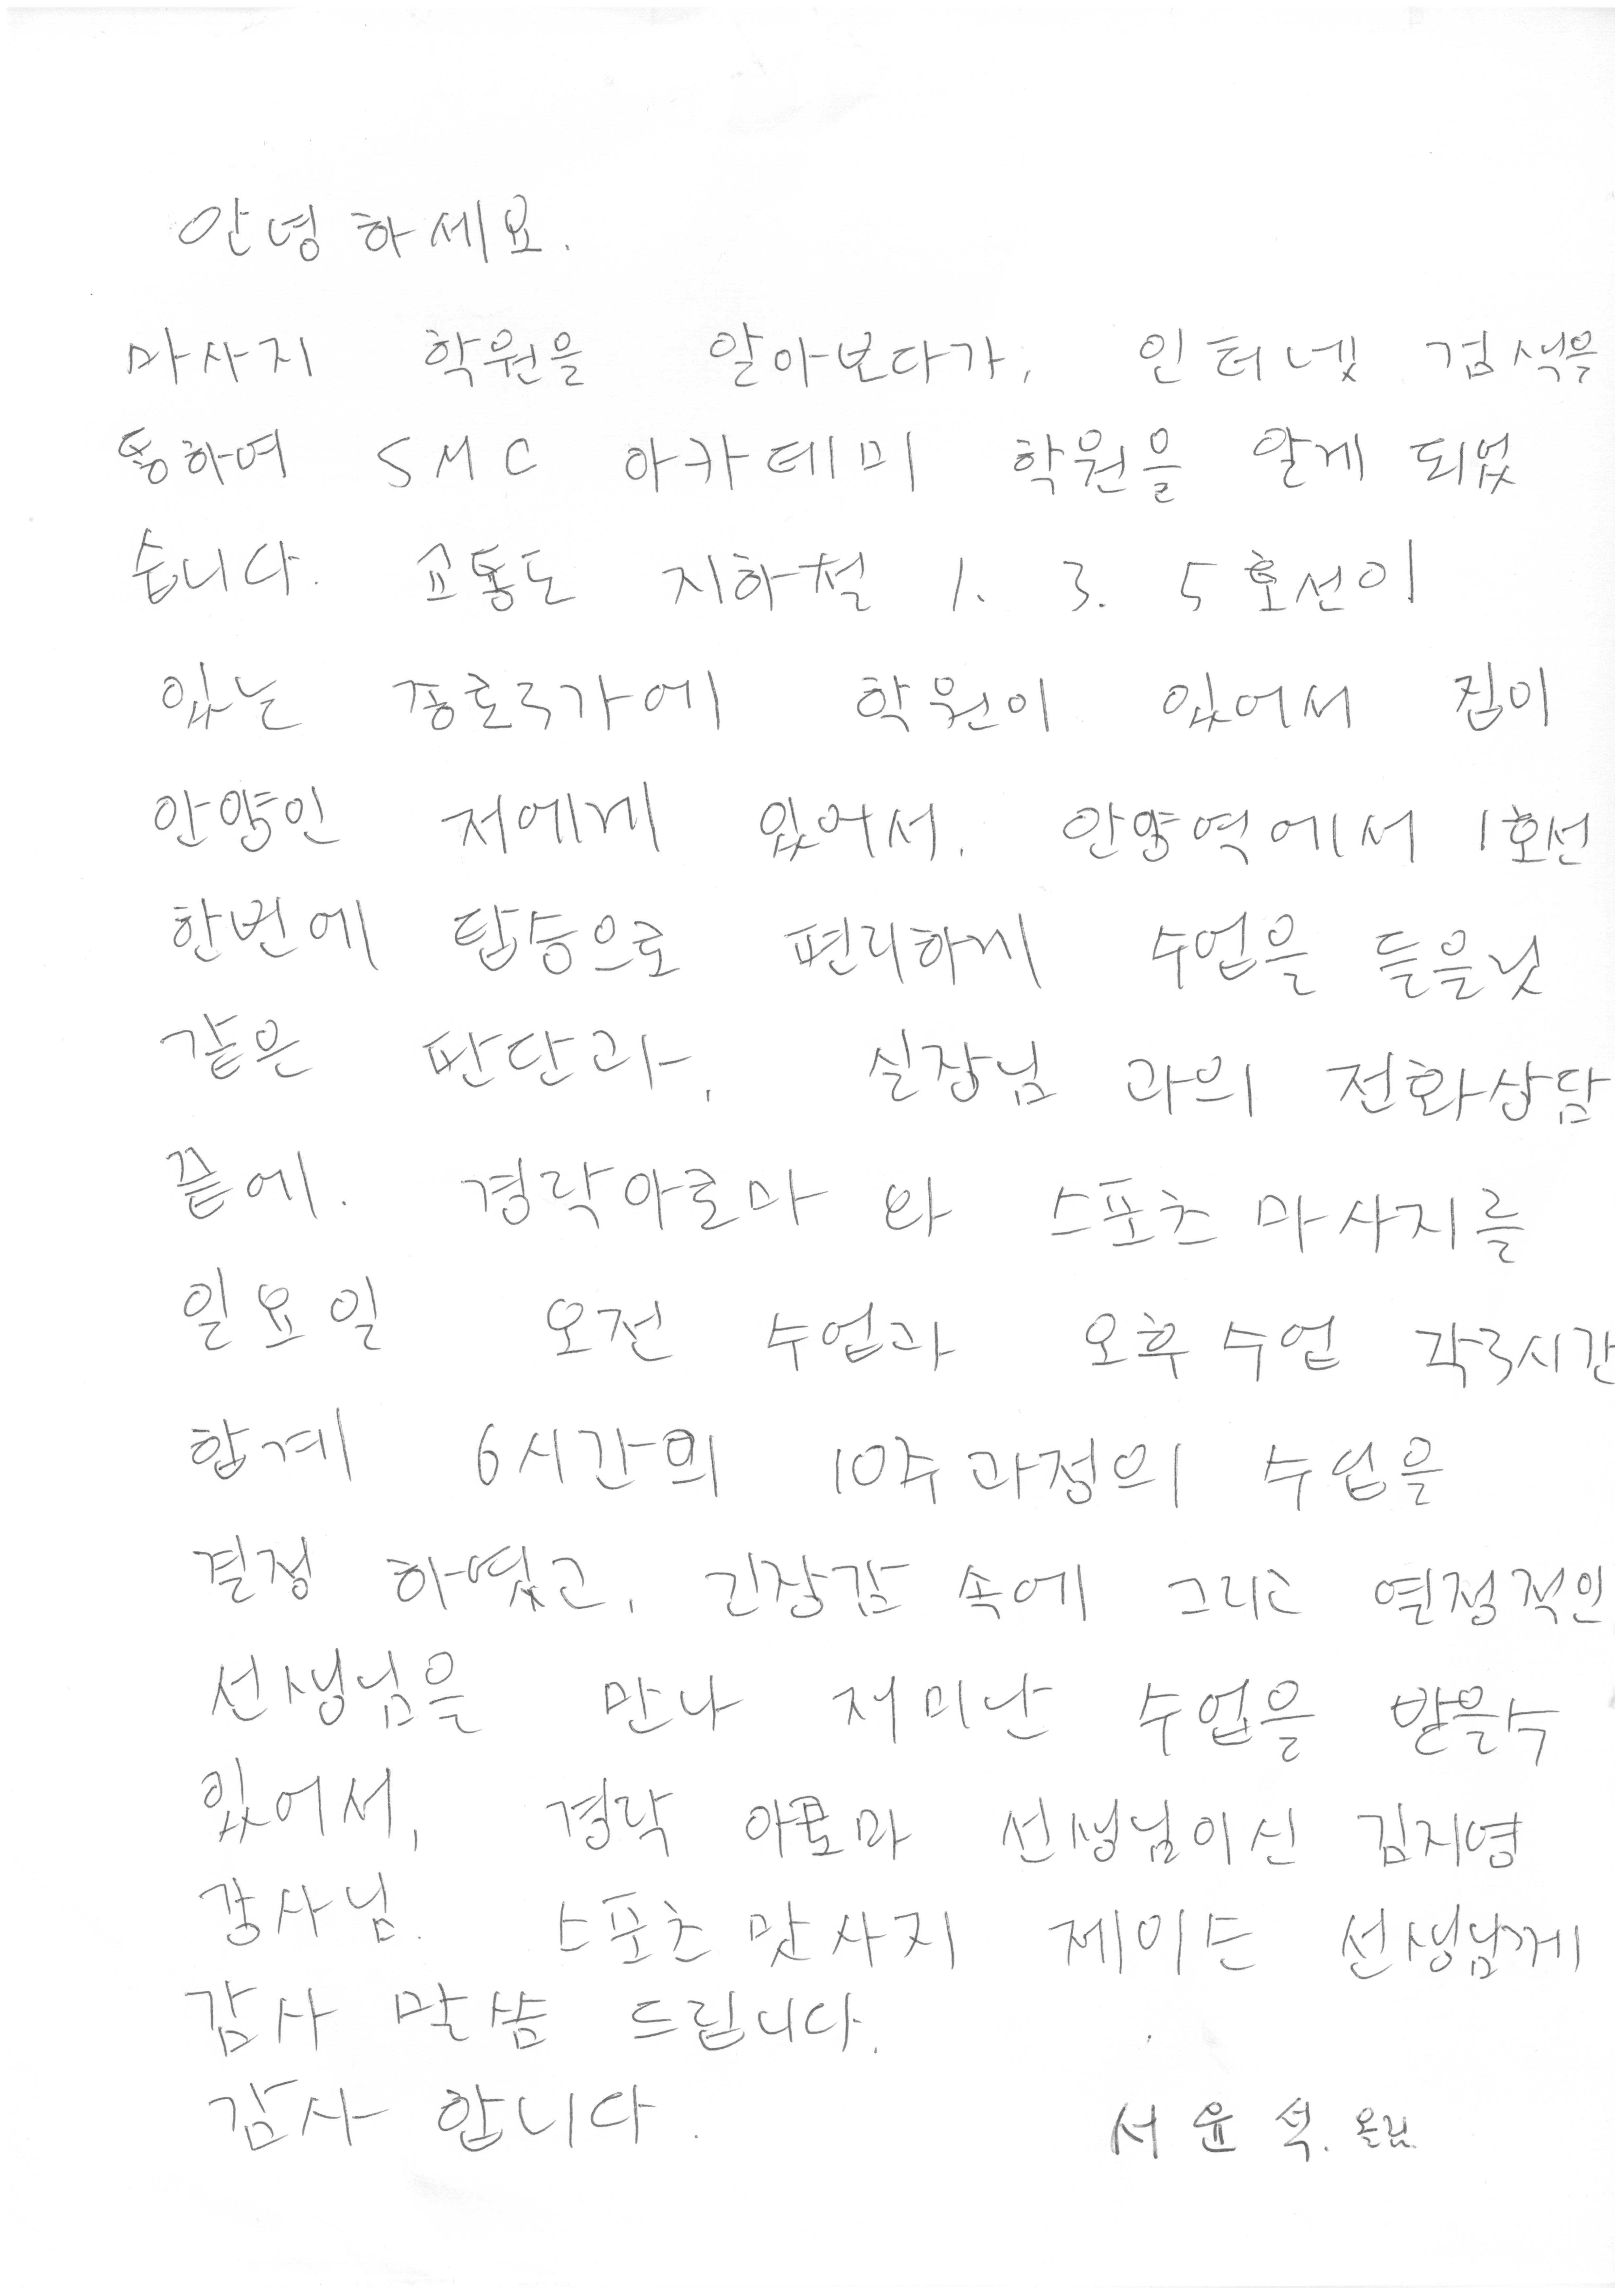 안녕하세요.
마사지 학원을 알아보다가, 인터넷 검색을
통하여 SMC 아카데미 학원을 알게 되었
습니다. 교통도 지하철 1. 3. 5호선이
있는 종로3가에 학원이 있어서 집이
안양인 저에게 있어서. 안양역에서 1호선
한번에 탑승으로 편리하게 수업을 들을것
같은 판단과, 실장님 과의 전화상담
끝에. 경락아로마 와 스포츠 마사지를
일요일 오전 수업과 오후수업 각3시간
합계 6시간의 10주과정의 수업을
결정 하였고, 긴장감 속에 그리고 열정적인
선생님을 만나 재미난 수업을 받을수
있어서, 경락 아로마 선생님이신 김지영
강사님. 스포츠 맛사지 제이든 선생님께
감사 말씀 드립니다.
감사 합니다. 서윤석. 올림.